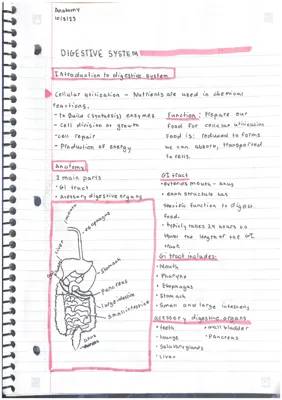 Anatomy
DIGESTIVE SYSTEM
Introduction to digestive system
Cellular utilization - Nutrients are used in chemical
reactions.
- to Build (synthesis) enzymes
- Cell division or growth
- cell repair
- Production of energy
Function: Prepare our
food for cellular utilization
Food is: reduced to forms
we can absorb, transported
to cells.
Anatomy
2 main parts
· GI tract
· Accessory digestive organs
GI tract
- extends mouth - anus
· each structure has
specific function to digest
food.
· typicly takes 24 hours to
travel the length of the GI
tract
GI tract includes:
· Mouth
· Pharynx
· Esophagus
· Stomach
· Small and large intestines
accessory digestive organs
· teeth
· tounge
· Salivary glands
· Liver
· Gallbladder
· Pancreas
esophagus
liver
Stomach
pancreas
large intestine
Small intestine
anus